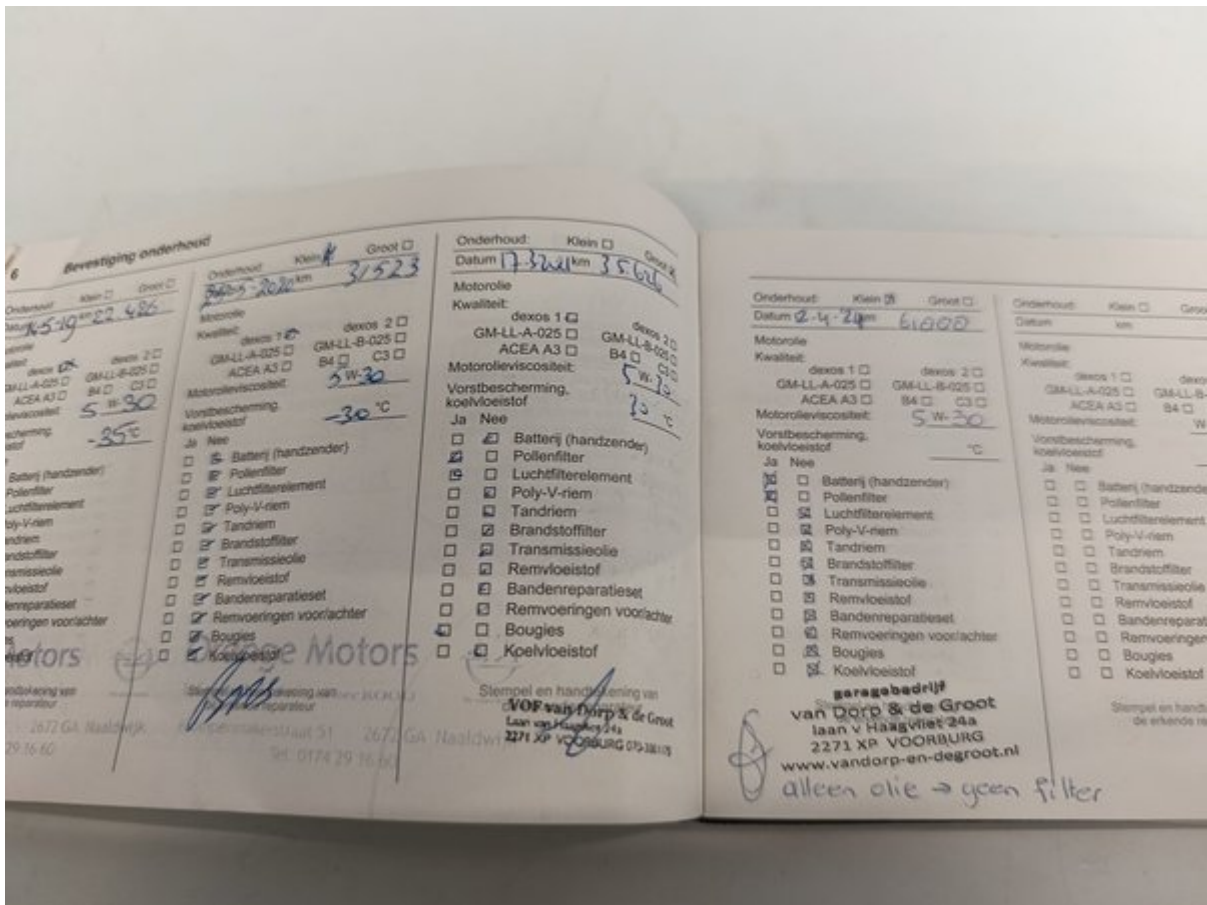 6 Bevestiging onderhoud
Onderhoud: Klein □ Groot □
Datum 14-5-19 km 22.426
Motorolie
dexos 2 □
GM-LL-A-025 □ GM-LL-B-025 □
ACEA A3 □ B4 □ C3 □
5 W-30
-35 °C
Batterij (handzender)
Pollenfilter
Luchtfilterelement
Poly-V-riem
Tandriem
Brandstoffilter
Transmissieolie
Remvloeistof
Bandenreparatieset
Remvoeringen voor/achter
Motors
2672 GA Naaldwijk
29 16 60
Onderhoud: Klein Groot □
5-2020 km 31523
Motorolie
Kwaliteit:
dexos 1 dexos 2 □
GM-LL-A-025 □ GM-LL-B-025 □
ACEA A3 □ B4 □ C3 □
Motorolieviscositeit: 5 W-30
Vorstbescherming,
koelvloeistof -30 °C
Ja Nee
Batterij (handzender)
Pollenfilter
Luchtfilterelement
Poly-V-riem
Tandriem
Brandstoffilter
Transmissieolie
Remvloeistof
Bandenreparatieset
Remvoeringen voor/achter
Bougies
Koelvloeistof
Motors
51 2672 GA Naaldwijk
Tel. 0174 29 16 60
Onderhoud: Klein □ Groot
Datum 17-3-2021 km 35626
Motorolie
Kwaliteit:
dexos 1 dexos 2 □
GM-LL-A-025 □ GM-LL-B-025 □
ACEA A3 □ B4 □ C3 □
Motorolieviscositeit: 5 W-30
Vorstbescherming,
koelvloeistof 30 °C
Ja Nee
Batterij (handzender)
Pollenfilter
Luchtfilterelement
Poly-V-riem
Tandriem
Brandstoffilter
Transmissieolie
Remvloeistof
Bandenreparatieset
Remvoeringen voor/achter
Bougies
Koelvloeistof
Stempel en handtekening van
VOF van Dorp & de Groot
Laan van Haagvliet 24a
2271 XP VOORBURG
Onderhoud: Klein Groot □
Datum 2-4-24 km 61000
Motorolie
Kwaliteit:
dexos 1 □ dexos 2 □
GM-LL-A-025 □ GM-LL-B-025 □
ACEA A3 □ B4 □ C3 □
Motorolieviscositeit: 5 W-30
Vorstbescherming,
koelvloeistof °C
Ja Nee
Batterij (handzender)
Pollenfilter
Luchtfilterelement
Poly-V-riem
Tandriem
Brandstoffilter
Transmissieolie
Remvloeistof
Bandenreparatieset
Remvoeringen voor/achter
Bougies
Koelvloeistof
garagebedrijf
van Dorp & de Groot
laan v Haagvliet 24a
2271 XP VOORBURG
www.vandorp-en-degroot.nl
alleen olie → geen filter
Onderhoud: Klein □
Datum km
Motorolie
Kwaliteit:
dexos 1 □
GM-LL-A-025 □
ACEA A3 □ B4 □
Motorolieviscositeit: W
Vorstbescherming,
koelvloeistof
Ja Nee
Batterij (handzende
Pollenfilter
Luchtfilterelement
Poly-V-riem
Tandriem
Brandstoffilter
Transmissieolie
Remvloeistof
Bandenreparat
Remvoeringen
Bougies
Koelvloeistof
Stempel en handt
de erkende re